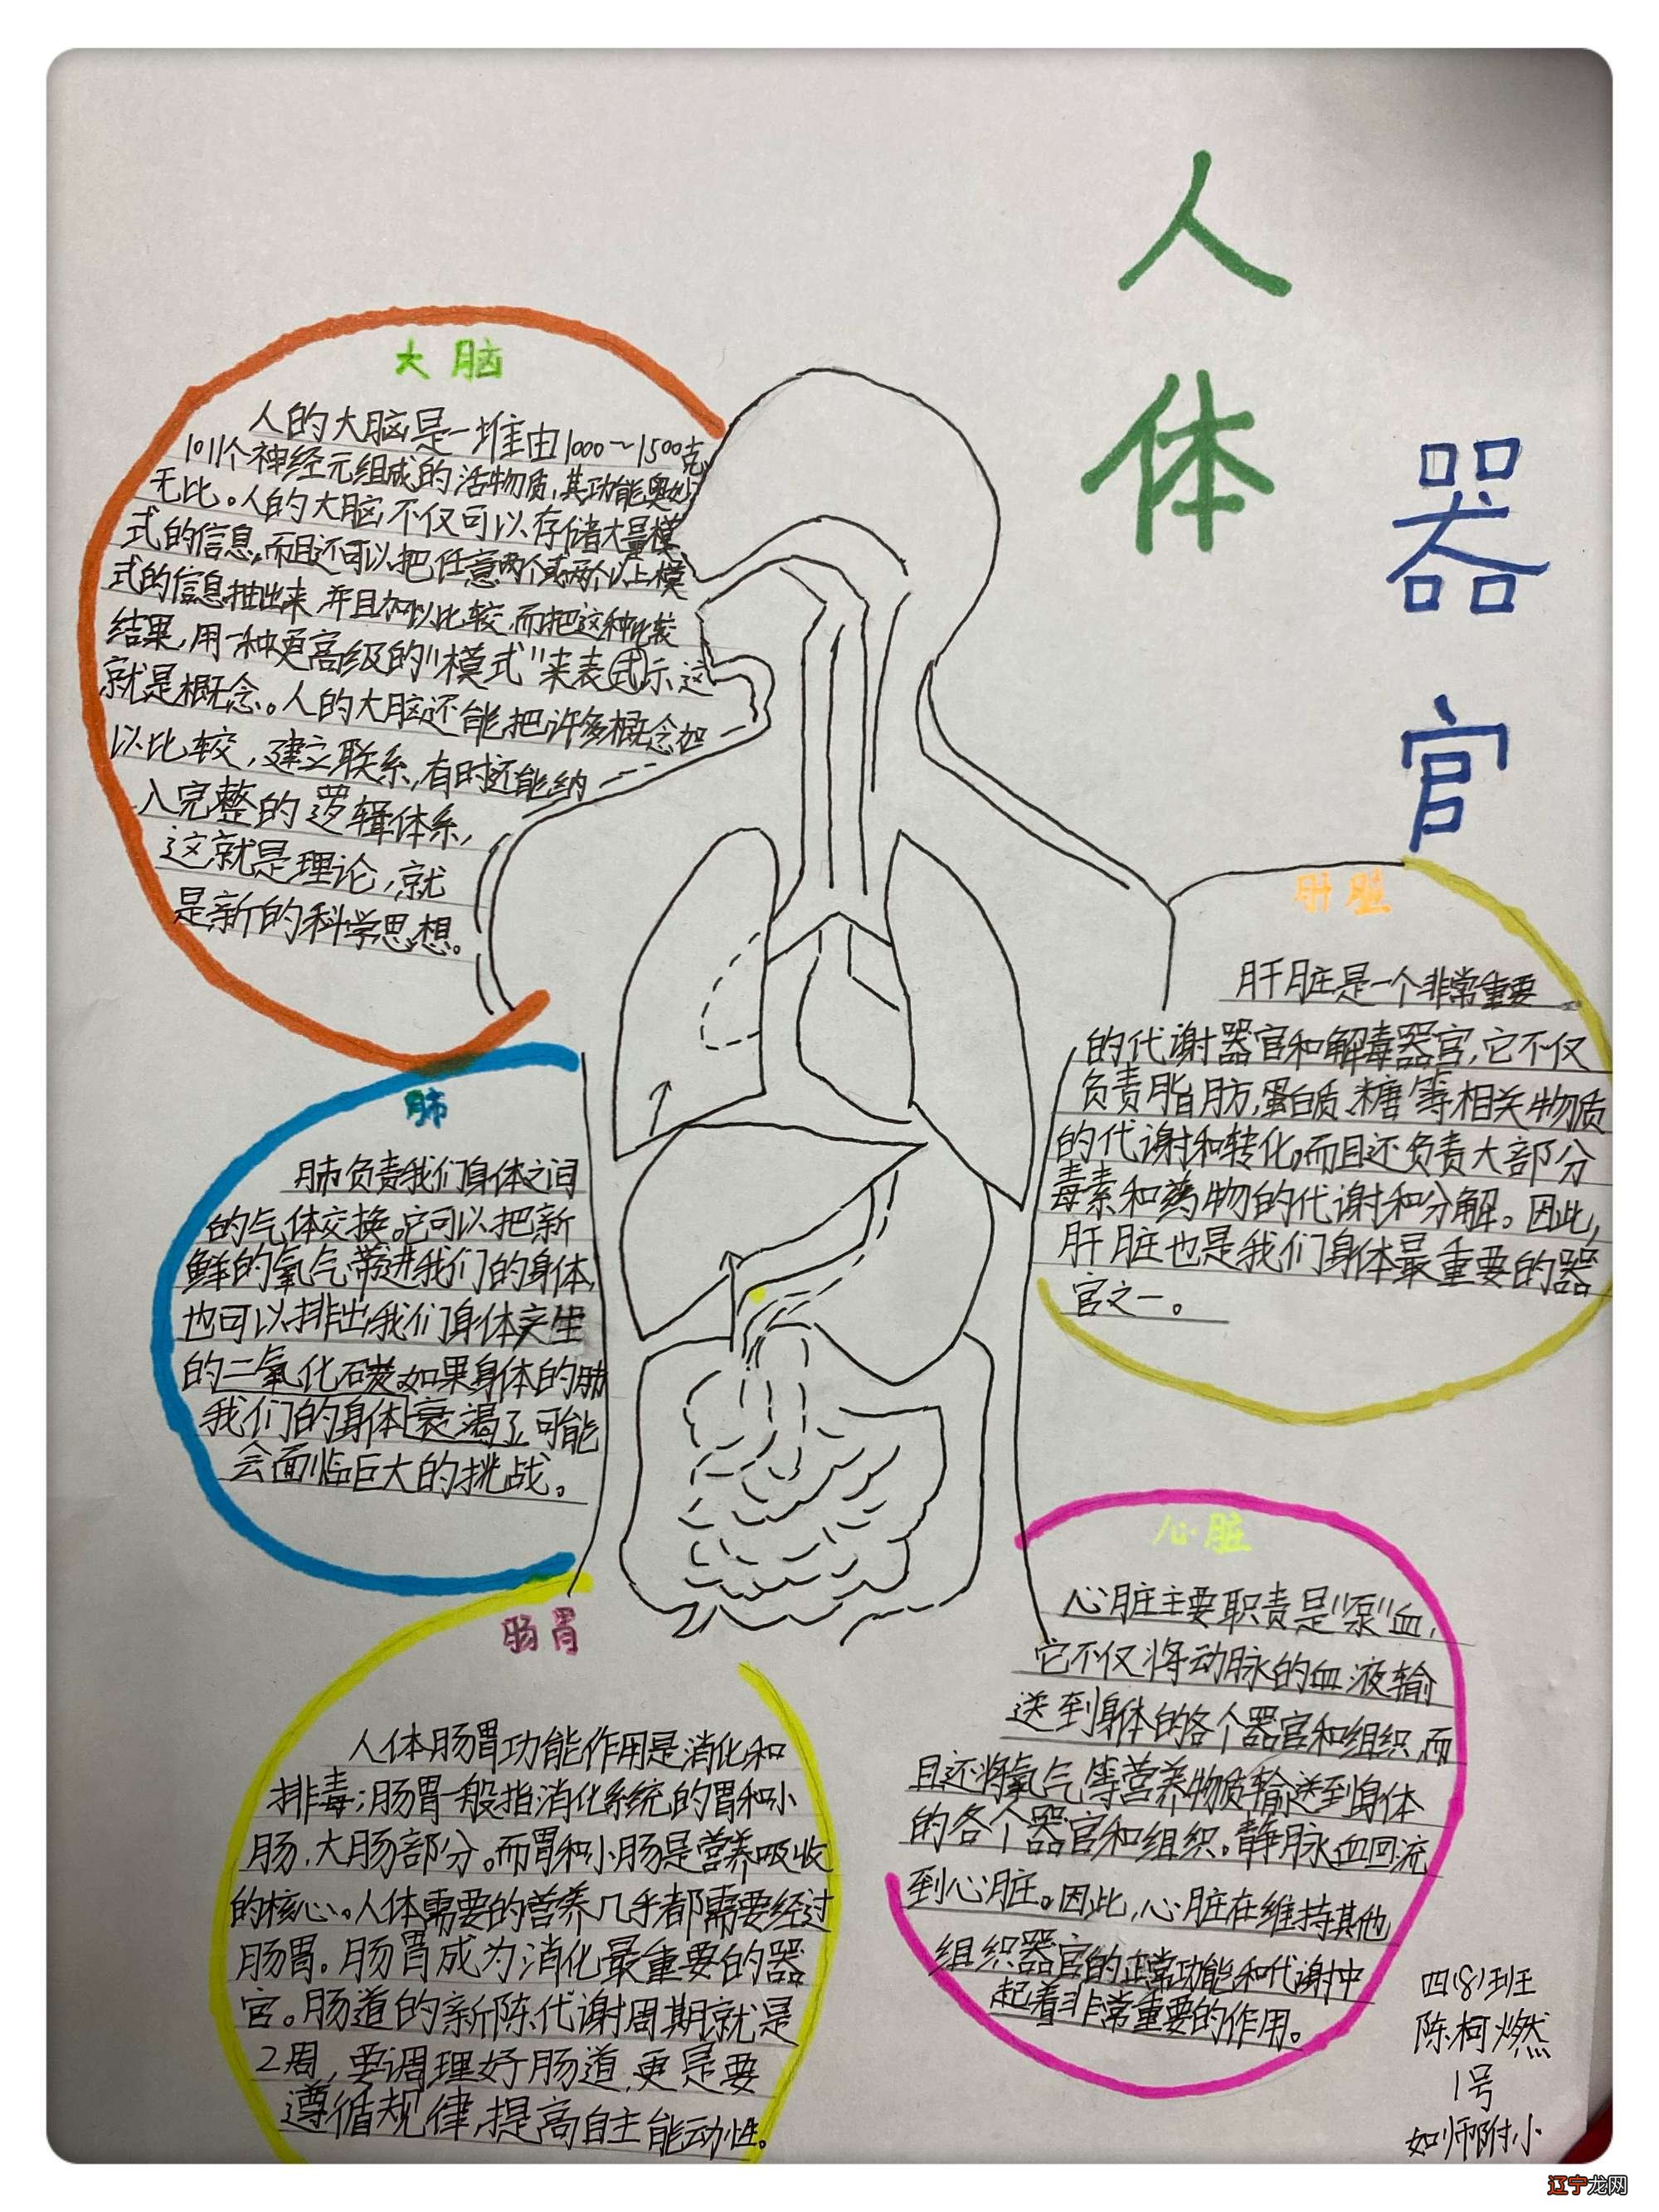 人
体
器
官
大脑
人的大脑是一堆由1000~1500克
1011个神经元组成的活物质,其功能奥妙
无比。人的大脑不仅可以存储大量模
式的信息,而且还可以把任意两个或两个以上模
式的信息抽出来,并且加以比较,而把这种比较
结果,用一种更高级的"模式"来表式示这
就是概念。人的大脑还能把许多概念加
以比较,建立联系,有时还能纳
入完整的逻辑体系,
这就是理论,就
是新的科学思想。
肺
肺负责我们身体之间
的气体交换。它可以把新
鲜的氧气带进我们的身体,
也可以排出我们身体产生
的二氧化碳。如果身体的肺
我们的身体衰竭了,可能
会面临巨大的挑战。
肠胃
人体肠胃功能作用是消化和
排毒;肠胃一般指消化系统的胃和小
肠、大肠部分。而胃和小肠是营养吸收
的核心。人体需要的营养几乎都需要经过
肠胃。肠胃成为消化最重要的器
官。肠道的新陈代谢周期就是
2周,要调理好肠道,更是要
遵循规律,提高自主能动性。
肝脏
肝脏是一个非常重要
的代谢器官和解毒器官,它不仅
负责脂肪,蛋白质、糖等相关物质
的代谢和转化。而且还负责大部分
毒素和药物的代谢和分解。因此,
肝脏也是我们身体最重要的器
官之一。
心脏
心脏主要职责是"泵"血,
它不仅将动脉的血液输
送到身体的各个器官和组织,而
且还将氧气等营养物质输送到身体
的各个器官和组织。静脉血回流
到心脏。因此,心脏在维持其他
组织器官的正常功能和代谢中
起着非常重要的作用。
四(8)班
陈柯燃
1号
如师附小
辽宁龙网